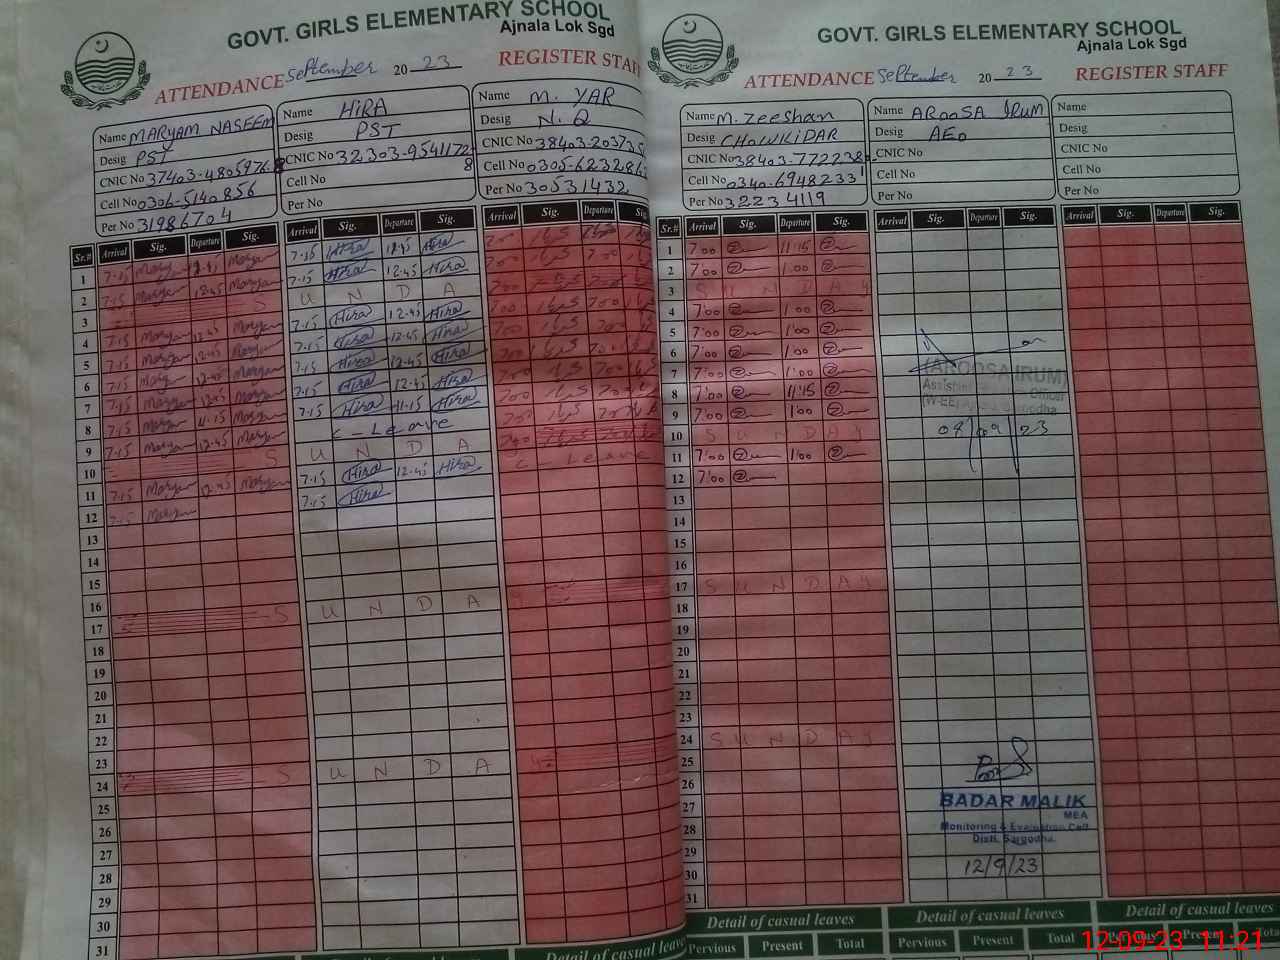 GOVT. GIRLS ELEMENTARY SCHOOL
Ajnala Lok Sgd
ATTENDANCE September 2023 REGISTER STAFF
Name MARYAM NASEEM
Desig PST
CNIC No 37403-4805976-8
Cell No 0306-5140856
Per No 31986704
Name HiRA
Desig PST
CNIC No 32303-9541172-8
Cell No
Per No
Name M. YAR
Desig N.Q
CNIC No 38403-203735
Cell No 0305-623286
Per No 30531432
Sr.# Arrival Sig. Departure Sig. Arrival Sig. Departure Sig. Arrival Sig. Departure Sig.
1 7.15 Maryam 12.45 Maryam 7.15 Hira 12.45 Hira 700
2 7.15 Maryam 12.45 Maryam 7.15 Hira 12.45 Hira 700
3 S U N D A
4 7.15 Maryam 12.45 Maryam 7.15 Hira 12.45 Hira 700
5 7.15 Maryam 12.45 Maryam 7.15 Hira 12.45 Hira 700
6 7.15 Maryam 12.45 Maryam 7.15 Hira 12.45 Hira 700
7 7.15 Maryam 12.45 Maryam 7.15 Hira 12.45 Hira 700
8 7.15 Maryam 11.15 Maryam 7.15 Hira 11.15 Hira 700
9 7.15 Maryam 12.45 Maryam C-Leave 700
10 S U N D A
11 7.15 Maryam 12.45 Maryam 7.15 Hira 12.45 Hira C Leave
12 7.15 Maryam 7.15 Hira
13
14
15
16
17 S U N D A
18
19
20
21
22
23
24 S U N D A
25
26
27
28
29
30
31
Detail of casual leaves
GOVT. GIRLS ELEMENTARY SCHOOL
Ajnala Lok Sgd
ATTENDANCE September 2023 REGISTER STAFF
Name M. Zeeshan
Desig CHOWKIDAR
CNIC No 38403-7722380-
Cell No 0340-6948233
Per No 32234119
Name AROOSA IRUM
Desig AEO
CNIC No
Cell No
Per No
Name
Desig
CNIC No
Cell No
Per No
Sr.# Arrival Sig. Departure Sig. Arrival Sig. Departure Sig. Arrival Sig. Departure Sig.
1 7:00 11:15
2 7:00 1:00
3 S U N D A Y
4 7:00 1:00
5 7:00 1:00
6 7:00 1:00
7 7:00 1:00
8 7:00 11:15
9 7:00 1:00
10 S U N D A Y
11 7:00 1:00
12 7:00
13
14
15
16
17 S U N D A Y
18
19
20
21
22
23
24 S U N D A Y
25
26
27
28
29
30
31
(AROOSA IRUM)
Officer
08/09/23
BADAR MALIK
MEA
Monitoring & Evaluation Cell
Distt. Sargodha.
12/9/23
Detail of casual leaves Detail of casual leaves Detail of casual leaves
Pervious Present Total Pervious Present Total Pervious Present Total
12-09-23 11:21